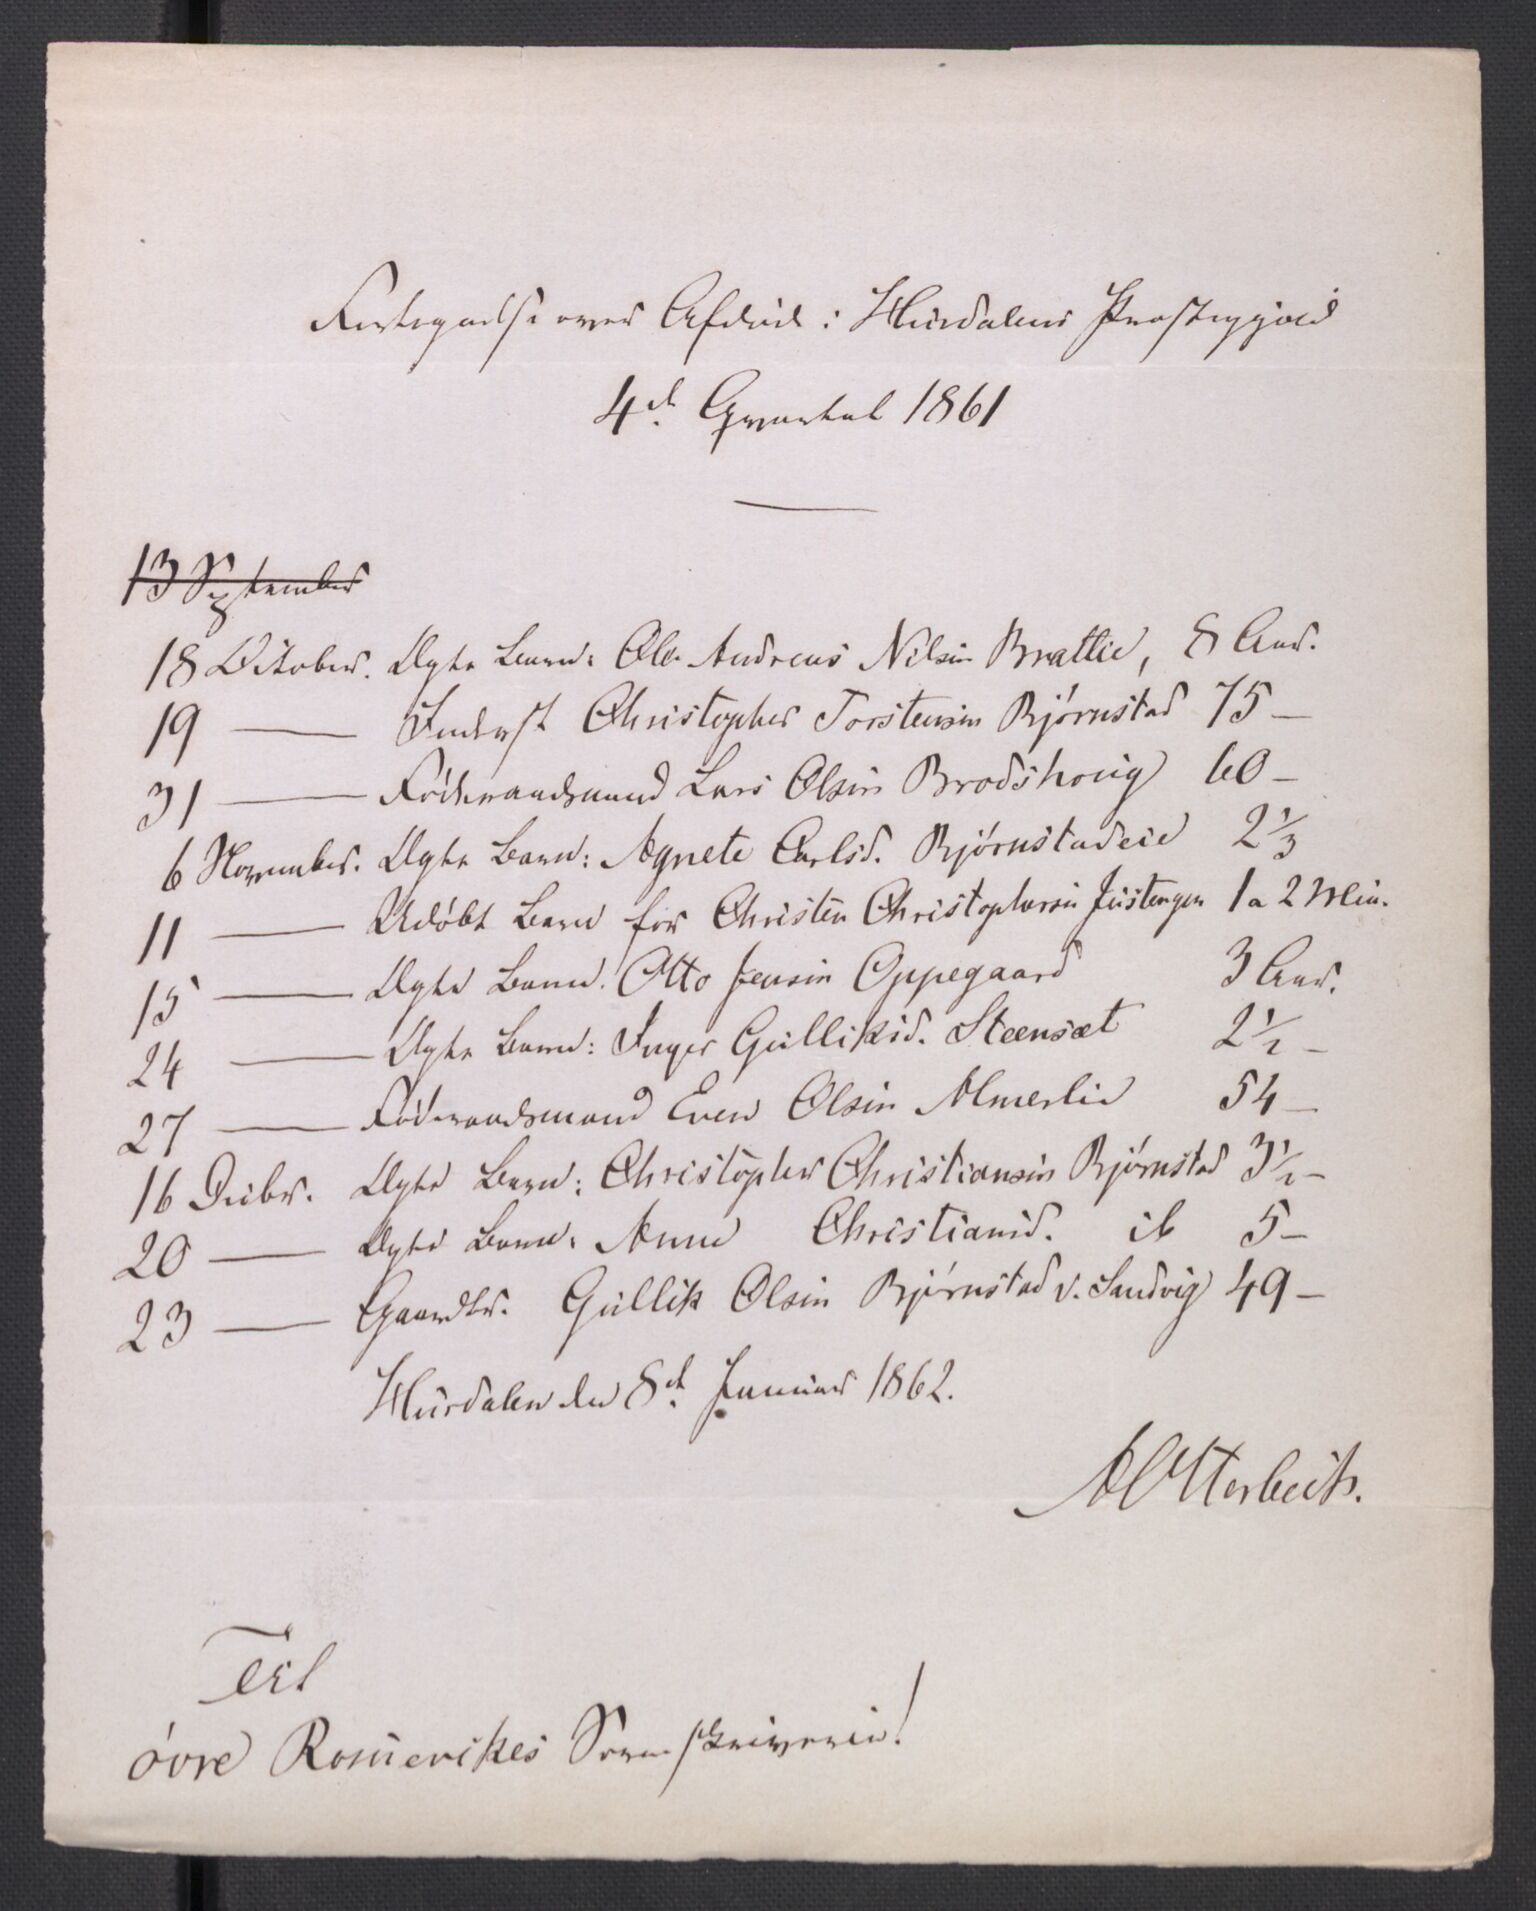 Fortegnelse over Afdøde i Hurdalens Præstegjæld
4de Qvartal 1861
13 September
18 October. Ægte Barn: Ole Andreas Nilsen Brattlie, 8 Aar.
19 — Inderst Christopher Torstensen Bjørnstad 75 –
31 — Føderaadsmand Lars Olsen Brodshoug 60 –
6 November. Ægte Barn: Agnete Carlsd. Bjørnstadeie 2 1/3
11 — Udøbt Barn for Christen Christophersen 1 a 2 Min.
15 — Ægte Barn: Otto Jensen Oppegaard 3 Aar.
24 — Ægte Barn: Inger Gulliksd. Steensæt 2 1/2 –
27 — Føderaadsmand Even Olsen Almerlie 54 –
16 Decbr. Ægte Barn: Christopher Christiansen Bjørnstad 3 1/2 –
20 — Ægte Barn: Anne Christiansd. ib 5 –
23 — Gaardbr. Gullik Olsen Bjørnstad v. Sandvig 49 –
Hurdalen den 8de Januar 1862.
A Otterbech.
Til
øvre Romerikes Sorenskriverie!